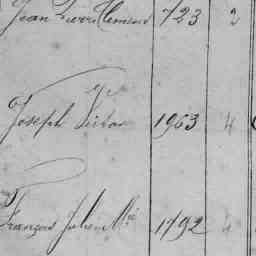 Jean Pierre Clement 723 2
Joseph Victor 1963 4
François Julien Mie 1792 4